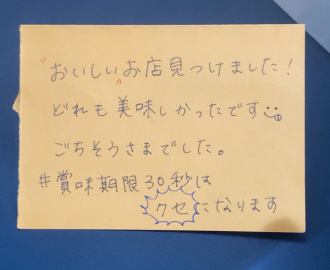 "おいしいお店見つけました！
どれも美味しかったです
ごちそうさまでした。
#賞味期限30秒は
クセになります